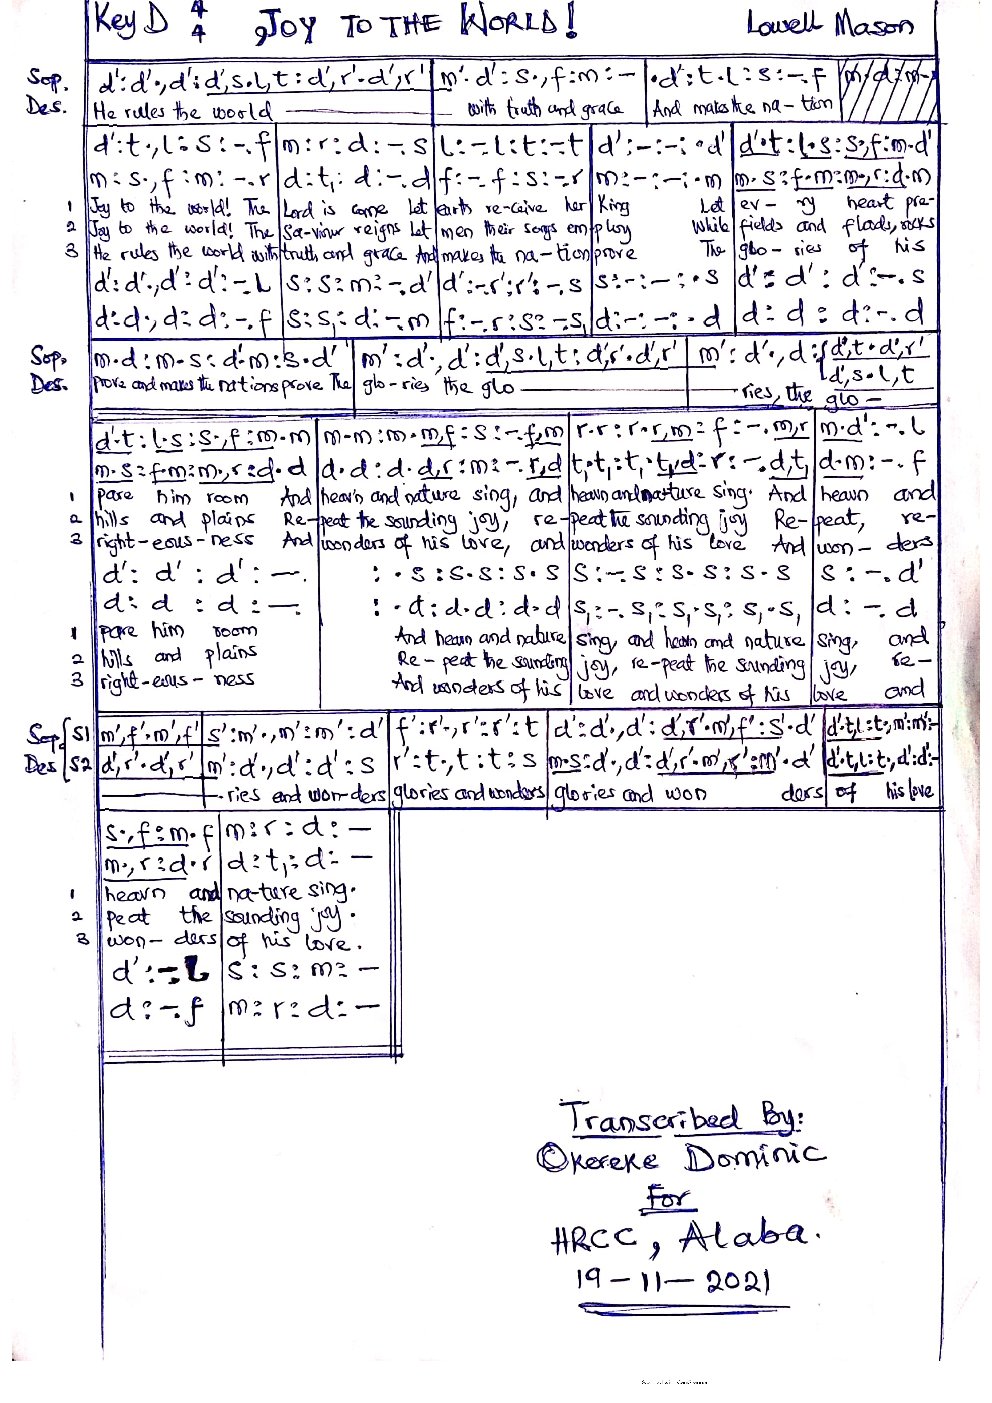 Key D 4/4 JOY TO THE WORLD! Lowell Mason
Sop. d':d'.,d':d',s.l,t:d',r'.d',r' | m'.d':s.,f:m:– | .d':t.l:s:–.f
Des. He rules the world — with truth and grace And makes the na-tion
d':t.,l:s:–.f | m:r:d:–.s | l:–.l:t:–.t | d':–:–:.d' | d'.t:l.s:s.,f:m.d'
m:s.,f:m:–.r | d:t,:d:–.d | f:–.f:s:–.r | m:–:–:.m | m.s:f.m:m.,r:d.m
1 Joy to the world! The Lord is come Let earth re-ceive her King Let ev-ry heart pre-
2 Joy to the world! The Sa-viour reigns Let men their songs em ploy While fields and floods, rocks
3 He rules the world with truth and grace And makes the na-tion prove The glo-ries of his
d':d'.,d':d':–.l | s:s:m:–.d' | d':–.r':r':–.s | s:–:–:.s | d':d':d':–.s
d:d.,d:d:–.f | s:s,:d:–.m | f:–.r:s:–.s, | d:–:–:.d | d:d:d:–.d
Sop. m.d:m.s:d'.m:s.d' | m':d'.,d':d',s.l,t:d',r'.d',r' | m':d'.,d':{d',t.d',r'
d',s.l,t
Des. prove and makes the nations prove The glo-ries the glo — ries, the glo –
d'.t:l.s:s.,f:m.m | m.m:m.m,f:s:–.f,m | r.r:r.r,m:f:–.m,r | m.d':–.l
m.s:f.m:m.,r:d.d | d.d:d.d,r:m:–.r,d | t,.t,:t,.t,,d:r:–.d,t, | d.m:–.f
1 pare him room And heavn and nature sing, and heavn and nature sing. And heavn and
2 hills and plains Re-peat the sounding joy, re-peat the sounding joy Re-peat, re-
3 right-eous-ness And wonders of his love, and wonders of his love And won-ders
d':d':d':–. | :.s:s.s:s.s | s:–.s:s.s:s.s | s:–.d'
d:d:d:–. | :.d:d.d:d.d | s,:–.s,:s,.s,:s,.s, | d:–.d
1 pare him room And heavn and nature sing, and heavn and nature sing, and
2 hills and plains Re-peat the sounding joy, re-peat the sounding joy, re-
3 right-eous-ness And wonders of his love and wonders of his love and
Sop. [S1 m',f'.m',f' | s':m'.,m':m':d' | f':r'.,r':r':t | d':d'.,d':d',r'.m',f':s'.d' | d'.t,l:t.,m':m':–
Des [S2 d',r'.d',r' | m':d'.,d':d':s | r':t.,t:t:s | m.s:d'.,d':d',r'.m',r':m'.d' | d'.t,l:t.,d':d':–
— ries and won-ders glories and wonders glories and won ders of his love
s.,f:m.f | m:r:d:–
m.,r:d.r | d:t,:d:–
1 heavn and na-ture sing.
2 peat the sounding joy.
3 won-ders of his love.
d':–.l | s:s:m:–
d:–.f | m:r:d:–
Transcribed By:
Okereke Dominic
For
HRCC, Alaba.
19-11-2021